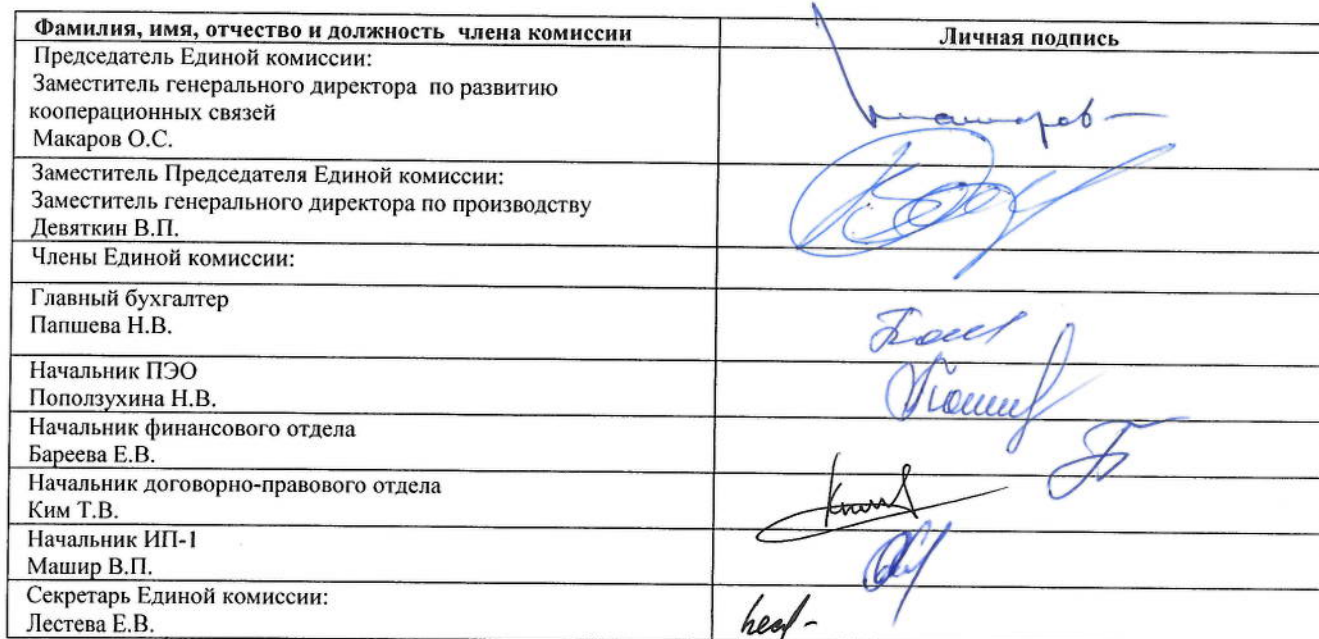 Фамилия, имя, отчество и должность члена комиссии
Личная подпись
Председатель Единой комиссии:
Заместитель генерального директора по развитию
кооперационных связей
Макаров О.С.
Заместитель Председателя Единой комиссии:
Заместитель генерального директора по производству
Девяткин В.П.
Члены Единой комиссии:
Главный бухгалтер
Папшева Н.В.
Начальник ПЭО
Поползухина Н.В.
Начальник финансового отдела
Бареева Е.В.
Начальник договорно-правового отдела
Ким Т.В.
Начальник ИП-1
Машир В.П.
Секретарь Единой комиссии:
Лестева Е.В.